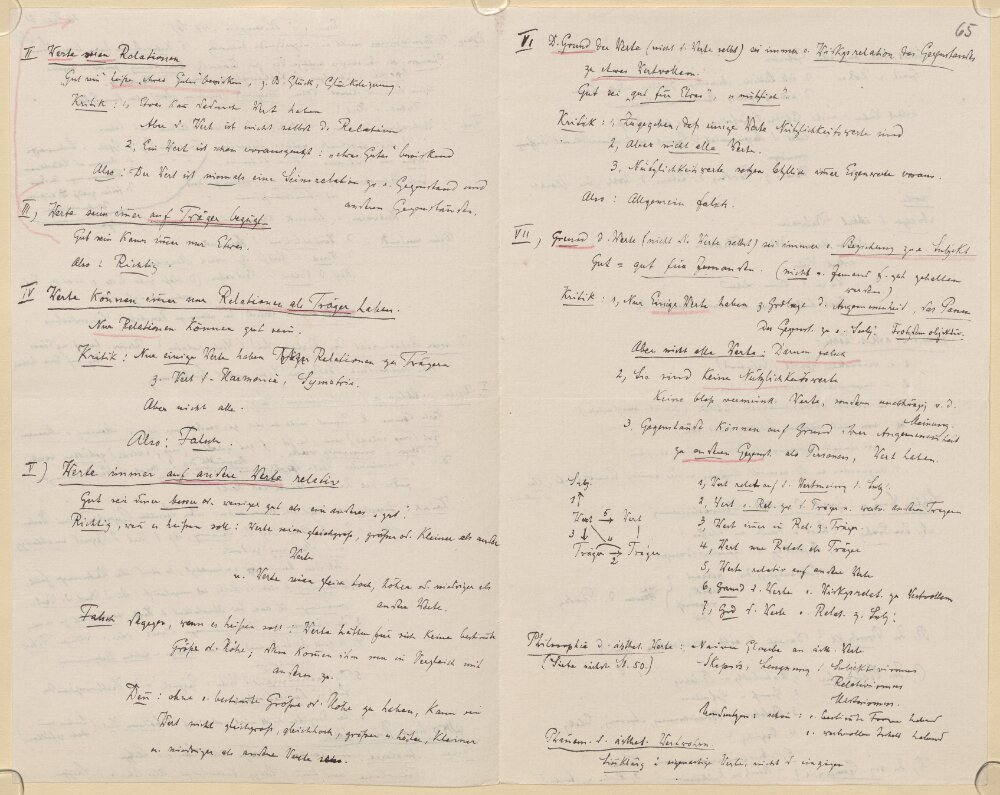 II Werte seien Relationen
Gut sein heiße „etwas Gutes" bewirken, z. B. Glück,
Kritik: 1, Etwas kann dadurch Wert haben
Aber d. Wert ist nicht selbst d. Relation
2, Ein Wert ist schon vorausgesetzt: „etwas Gutes" bewirkend
Also: Der Wert ist niemals eine Seinsrelation zw. e. Gegenstand und
anderen Gegenständen.
III, Werte seien immer auf Träger bezogen.
Gut sein kann immer nur Etwas.
Also: Richtig.
IV Werte können immer nur Relationen als Träger haben.
Nur Relationen können gut sein.
Kritik: Nur einige Werte haben Relationen zu Trägern
z. Wert d. Harmonie, Symetrie.
Aber nicht alle.
Also: Falsch.
V) Werte immer auf andere Werte relativ
Gut sei immer besser od. weniger gut als ein anderes „gut".
Richtig, wenn es heißen soll: Werte seien gleichgroß, größer od. kleiner als andre
Werte
u. Werte seien gleich hoch, höher od. niedriger als
andere Werte.
Falsch dagegen, wenn es heißen soll: Werte hätten für sich keine bestimmte
Größe od. Höhe; diese kommen ihm nur im Vergleich mit
anderen zu.
Denn: ohne e. bestimmte Größe od. Höhe zu haben, kann ein
Wert nicht gleichgroß, gleichhoch, größer u. höher, kleiner
u. niedriger als andere Werte
65
VI D. Grund der Werte (nicht d. Werte selbst) sei immer e. Wirkgsrelation des Gegenstandes
zu etwas Wertvollem.
Gut sei „gut für Etwas", „nützlich".
Kritik: 1, Zugegeben, daß einige Werte Nützlichkeitswerte sind
2, Aber nicht alle Werte.
3, Nützlichkeitswerte setzen letztlich immer Eigenwerte voraus.
Also: Allgemein falsch.
VII, Grund d. Werte (nicht die Werte selbst) sei immer e. Beziehung zu e. Subjekt
Gut = gut für jemanden. (nicht v. jemand f. gut gehalten
werden.)
Kritik: 1, Nur Einige Werte haben z. Grdlage d. Angemessenheit, das Passen
Des Gegenst. zu e. Subj. Trotzdem objektiv.
Aber nicht alle Werte: Darum falsch
2, Sie sind keine Nützlichkeitswerte
Keine bloß vermeintl. Werte, sondern unabhängig v. d.
Meinung.
3, Gegenstände können auf Grund ihrer Angemessenheit
zu anderen Gegenst. als Personen, Wert haben.
Subj.
1
Wert 5 Wert
3 4
Träger 2 Träger
1, Wert relat. auf d. Wertmeinung d. Subj.
2, Wert e. Rel. zw. d. Träger u. wertv. anderen Trägern
3, Wert immer in Rel. z. Träger.
4, Wert nur Relat. als Träger
5, Werte relativ auf andere Werte
6, Grund d. Werte e. Wirkgsrelat. zu Wertvollem
7, Grd d. Werte e. Relat. z. Subj.
Philosophie d. ästhet. Werte: Naiver Glaube an ästh. Werte
(Siehe nächst. Bl. 50.) Skepsis, Leugnung: Subjektivismus
Relativismus
schön: e. bestimmte Form habend
e. wertvollen Inhalt habend
Phänom. d. ästhet. Wertwahrn.
eigenartige Werte, nicht d. einzigen